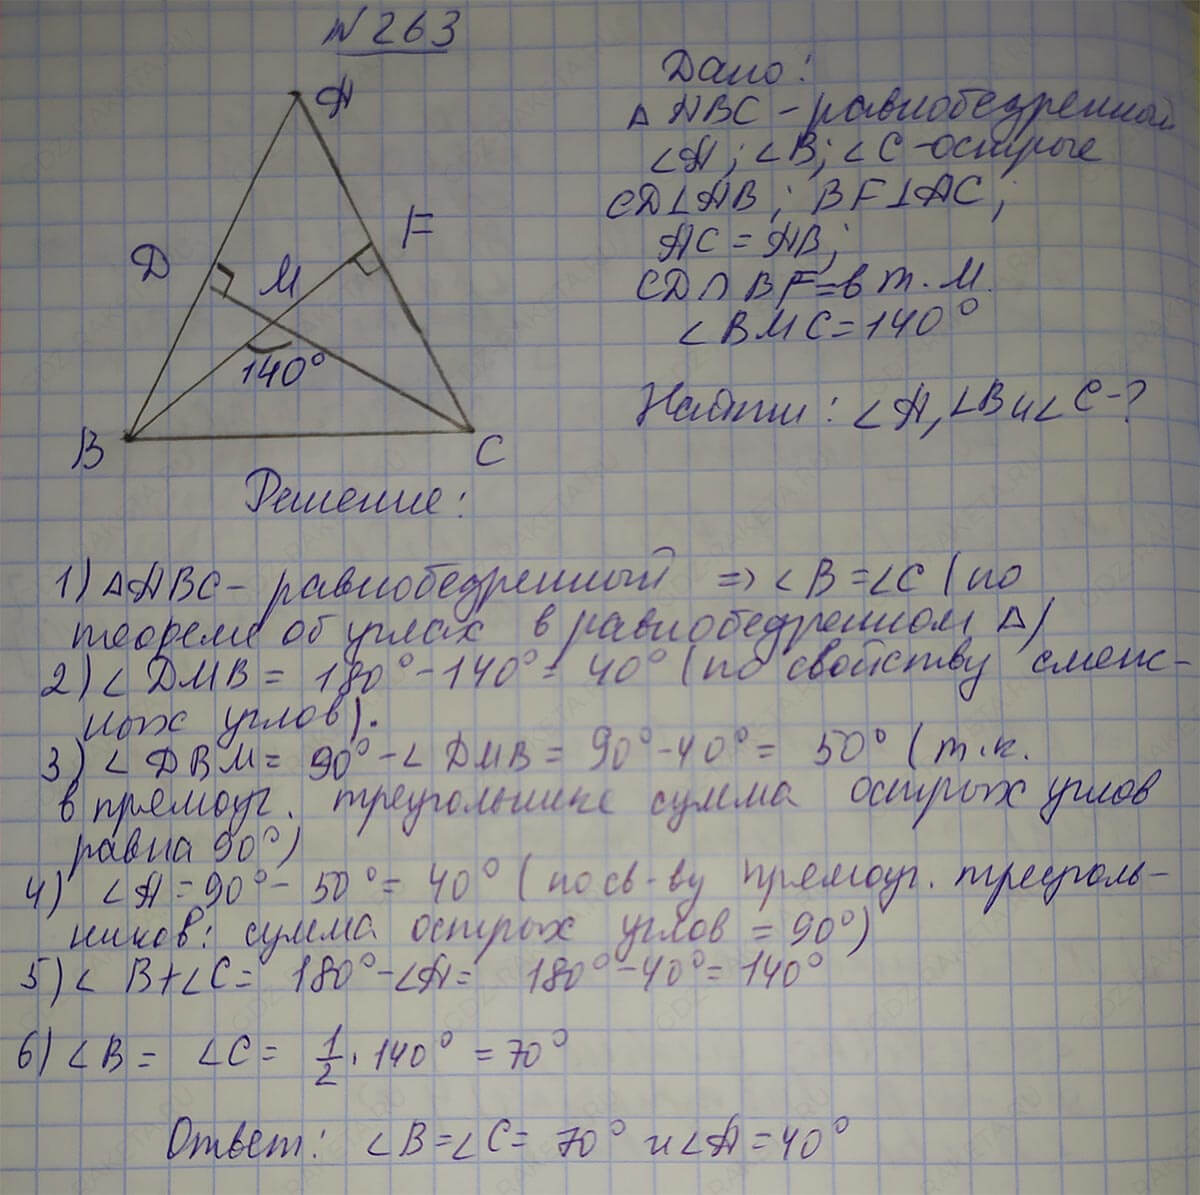 №263
A
F
D
M
140°
B
C
Дано:
△ ABC - равнобедренный
∠A; ∠B; ∠C - острые
CD⊥AB; BF⊥AC;
AC = AB;
CD∩BF = в т. M.
∠BMC = 140°
Найти: ∠A, ∠B и ∠C-?
Решение:
1) △ABC - равнобедренный => ∠B = ∠C (по
теореме об углах в равнобедренном △)
2) ∠DMB = 180° - 140° = 40° (по свойству смеж-
ных углов).
3) ∠DBM = 90° - ∠DMB = 90° - 40° = 50° (т.к.
в прямоуг. треугольнике сумма острых углов
равна 90°)
4) ∠A = 90° - 50° = 40° (по св-ву прямоуг. треуголь-
ников: сумма острых углов = 90°)
5) ∠B+∠C = 180° - ∠A = 180° - 40° = 140°
6) ∠B = ∠C = 1/2 · 140° = 70°
Ответ: ∠B = ∠C = 70° и ∠A = 40°